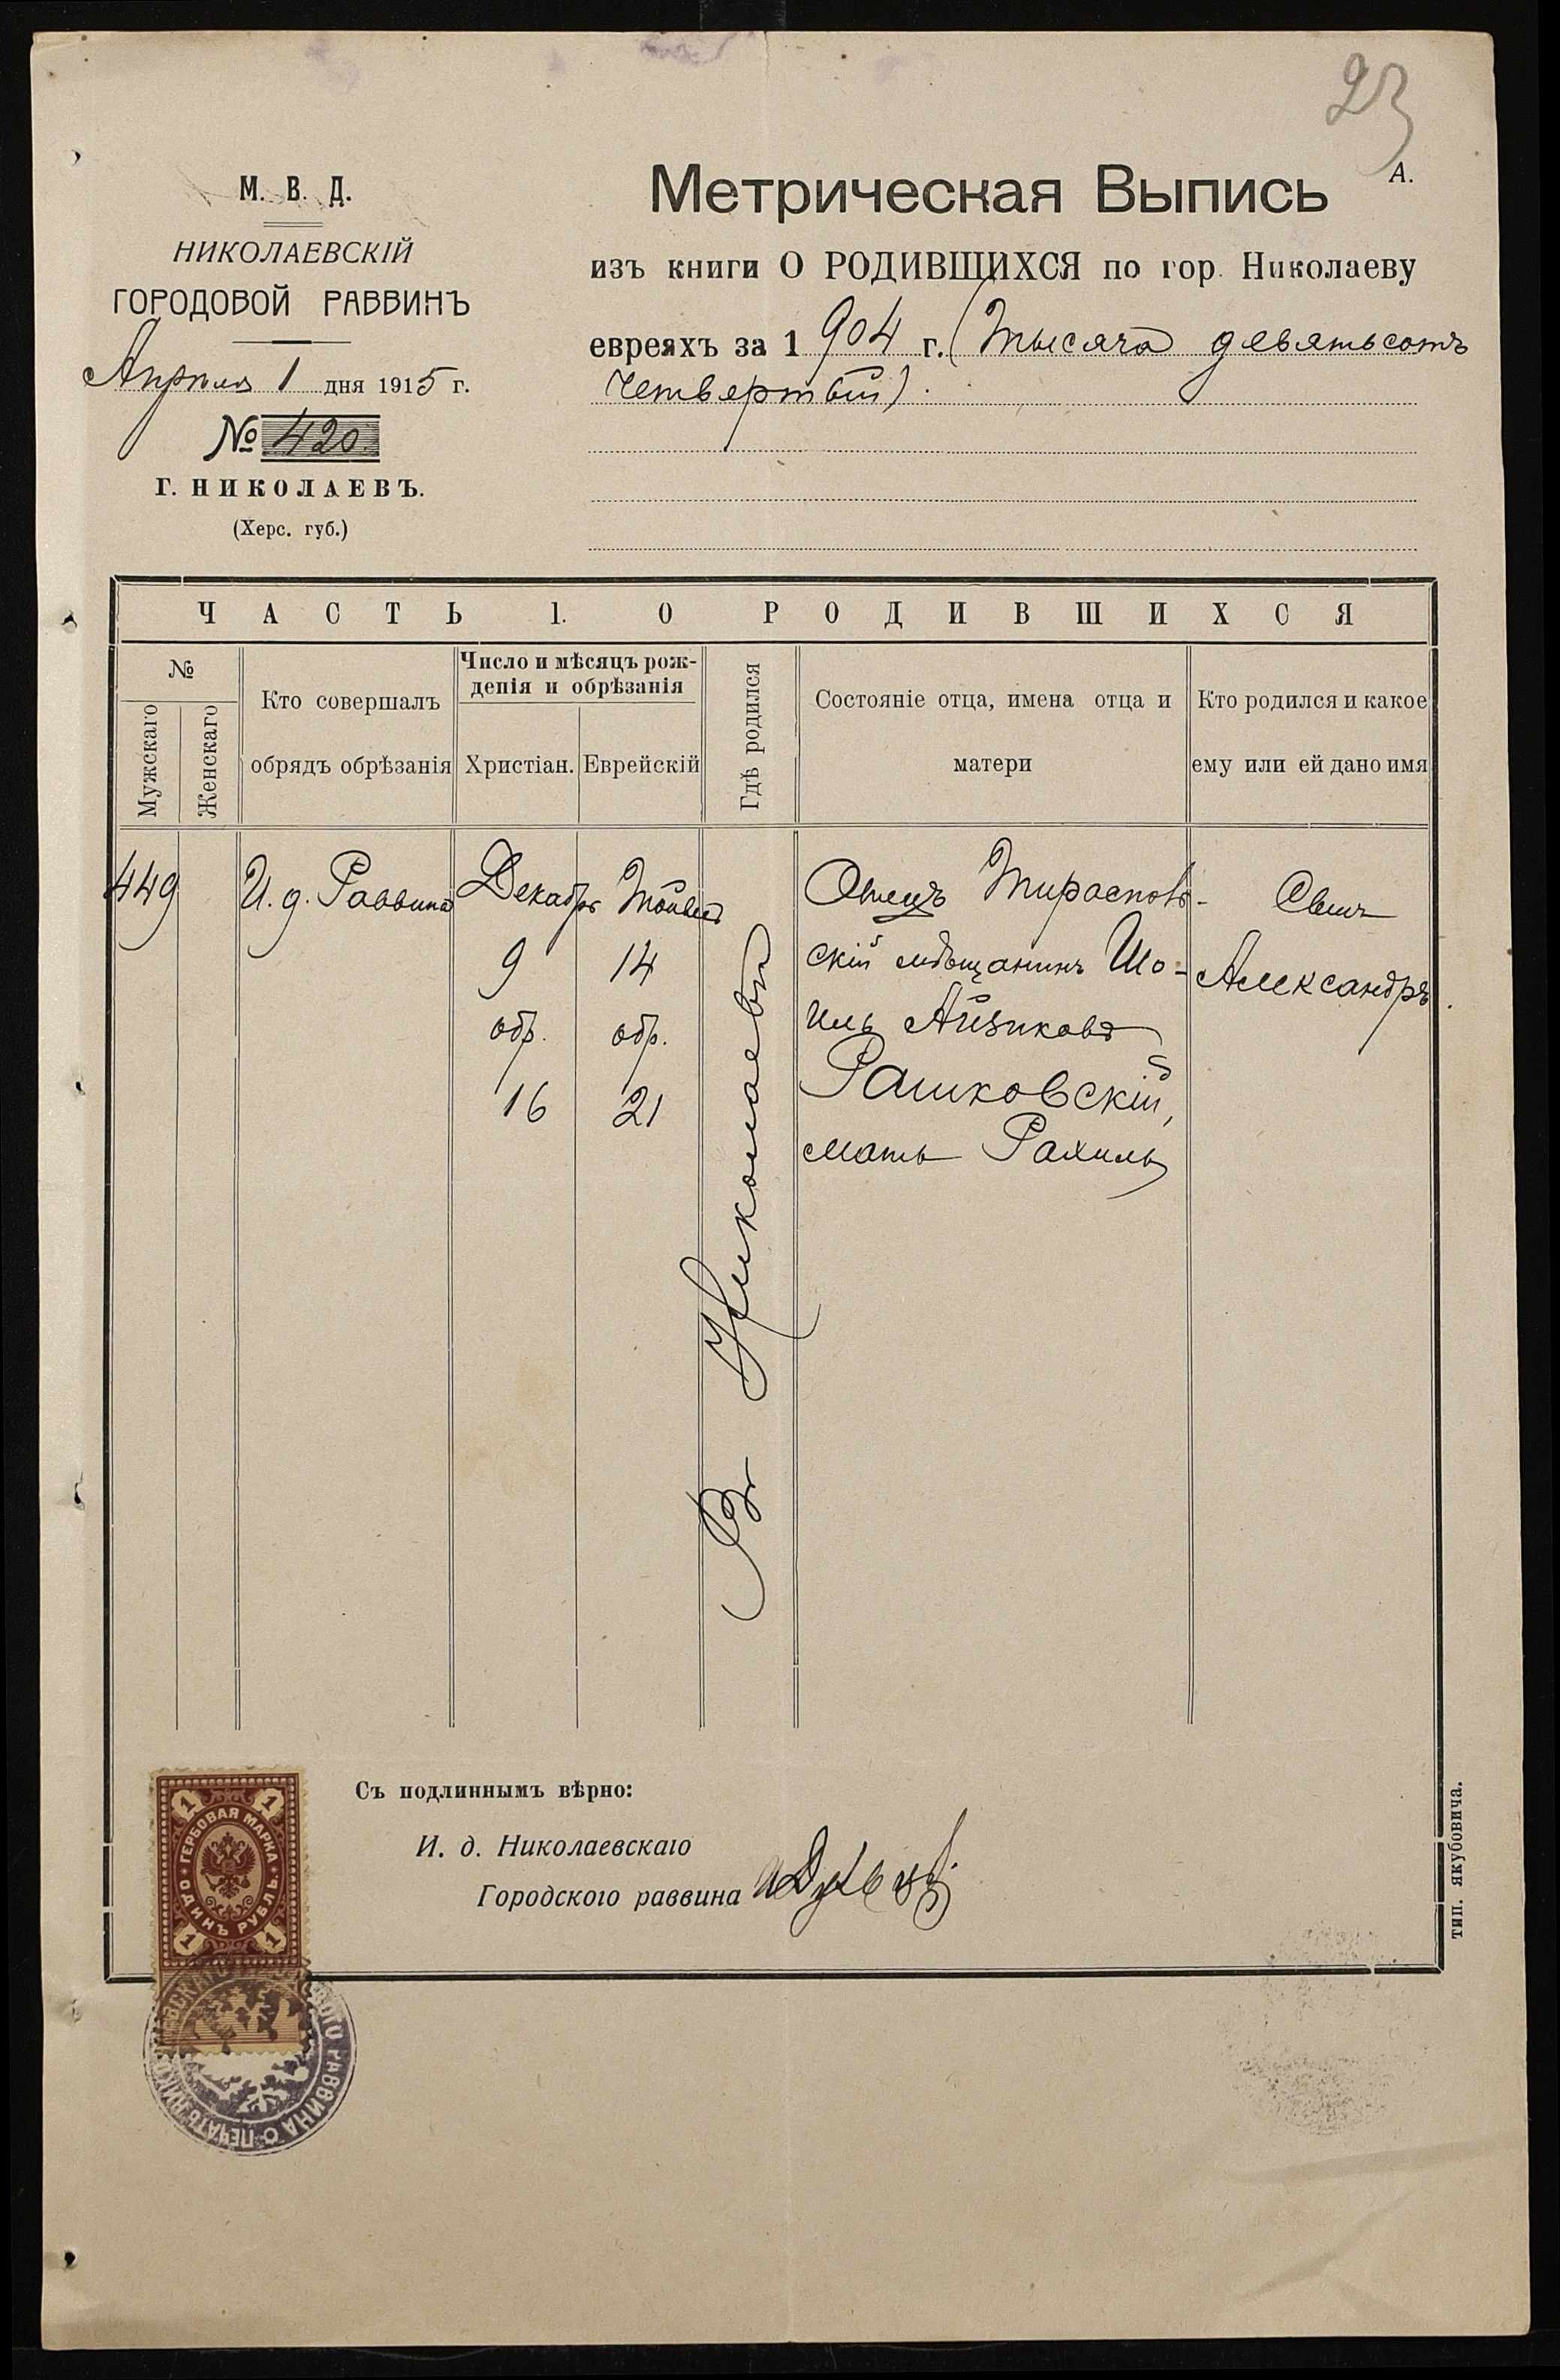 23
А.
М. В. Д.
НИКОЛАЕВСКІЙ
ГОРОДОВОЙ РАВВИНЪ
Апрѣля 1 дня 1915 г.
№ 420
Г. НИКОЛАЕВЪ.
(Херс. губ.)
Метрическая Выпись
изъ книги О РОДИВШИХСЯ по гор. Николаеву
евреяхъ за 1904 г. (тысяча девятьсотъ
четвертый).
ЧАСТЬ 1. О РОДИВШИХСЯ
№
Мужскаго
Женскаго
Кто совершалъ
обрядъ обрѣзанія
Число и мѣсяцъ рож-
денія и обрѣзанія
Христіан.
Еврейскій
Гдѣ родился
Состояніе отца, имена отца и
матери
Кто родился и какое
ему или ей дано имя
449
И. д. Раввина
Декабрь
9
обр.
16
14
обр.
21
Въ Николаевѣ
Отецъ Тирасполь-
скій мѣщанинъ Шо-
иль Айзиковъ
Рашковскій,
мать Рахиль
Сынъ
Александръ.
Съ подлиннымъ вѣрно:
И. д. Николаевскаго
Городского раввина
ГЕРБОВАЯ МАРКА
ОДИНЪ РУБЛЬ
1 1
1 1
ПЕЧАТЬ РАВВИНА
тип. якубовича.